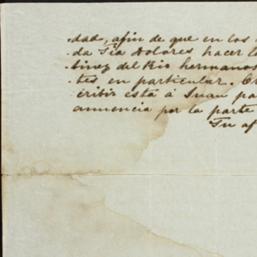 dad, afin de que en los
da Tia Dolores hacer lo
tinez del Rio hermanos
tes en particular.
cribir está á Juan pa
anuencia por la parte
Tu af